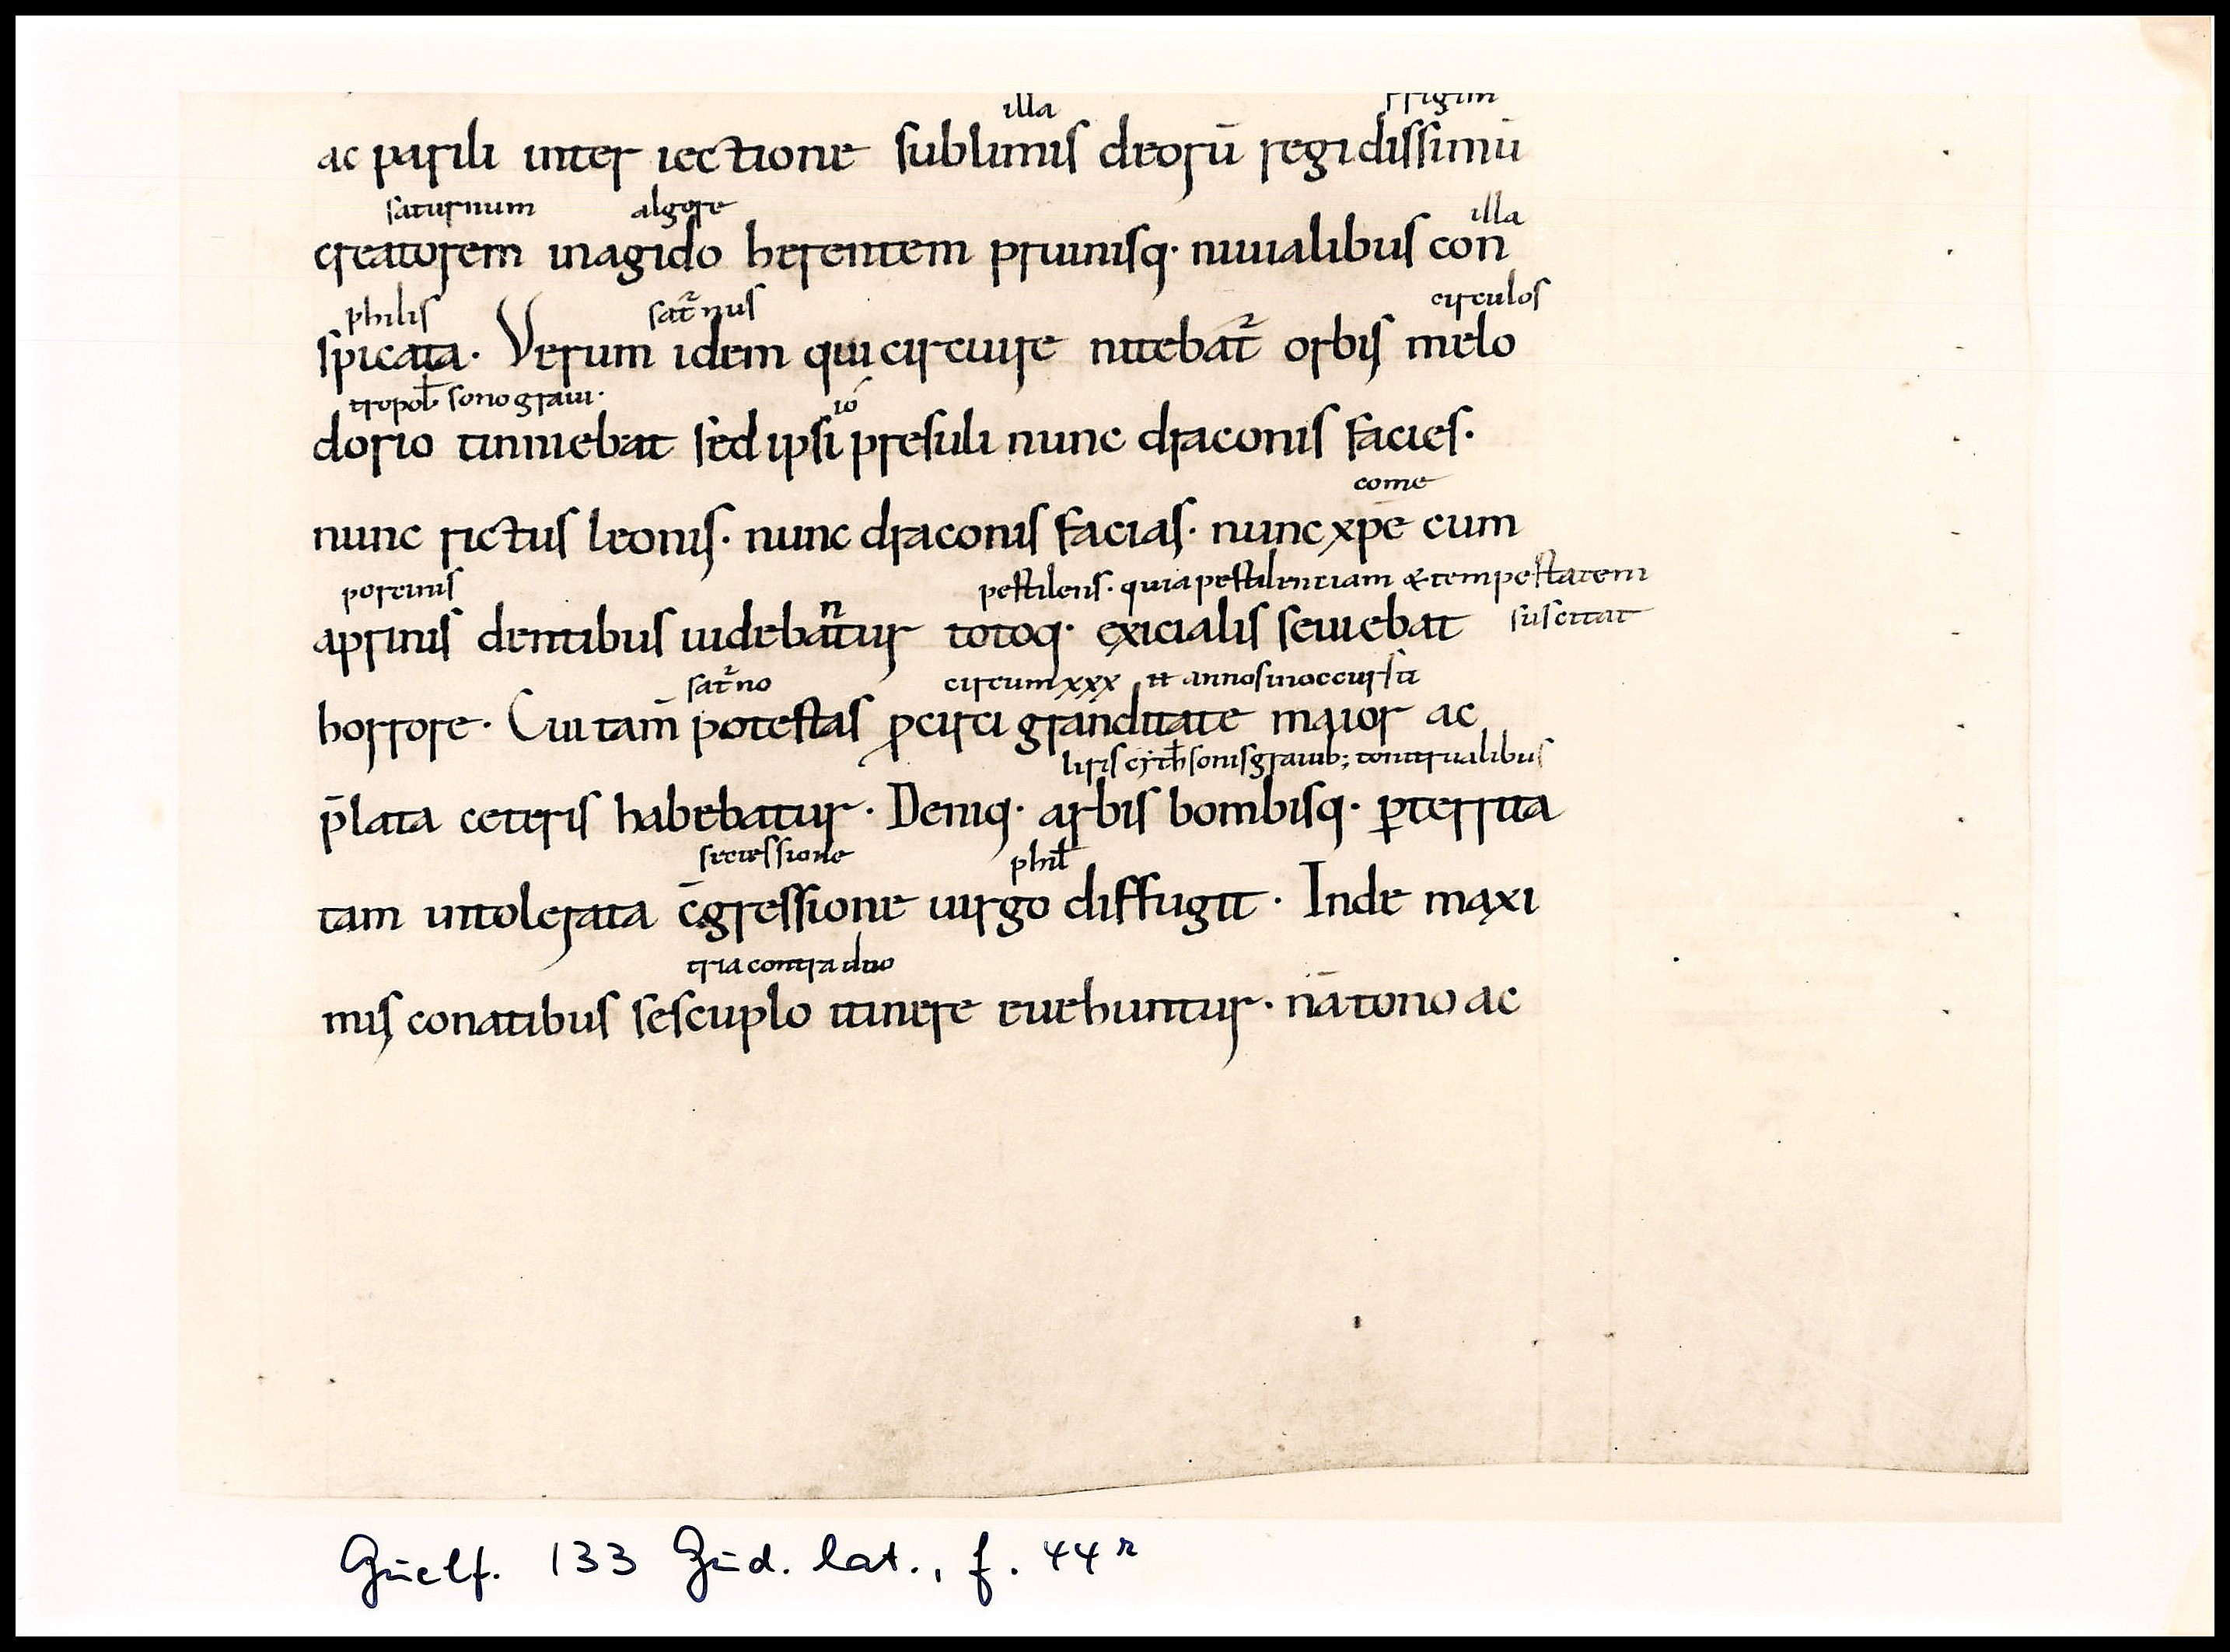 illa ffigim
ac parili inter iectione sublimis deorū regidissimū
saturnum algore illa
creatorem inagido herentem pruinisq· niuialibus con
philis satr̄nus circulos
spicata· Verum idem qui circuire nitebat᷑ orbis melo
tropol̄ sono graui· ió
dorio tinniebat sed ipsi presuli nunc draconis facies·
come
nunc rictus leonis· nunc draconis facias· nunc xpē cum
porcinis n pestilens· quia pestilentiam & tempestatem
aprinis dentibus uidebatur totoq· exicialis seuiebat suscitat
satr̄no circum xxx annos inoccursū
horrore· Cui tam̄ potestas ꝑcirci granditate maior ac
liris cyth̄ sonis grauib; tonitrualibus
p̄lata ceteris habebatur· Deniq· arbis bombisq· ꝑterrita
secessione phil̄
tam intolerata c̄gressione uirgo diffugit· Inde maxi
tria contra duo
mis conatibus sescuplo itinere euehuntur· nā tono ac
Guelf. 133 Gud. lat., f. 44r